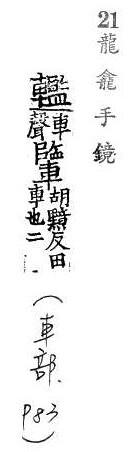 21 龍龕手鏡
轞車聲 胡黤反田車也二
(車部. P83)